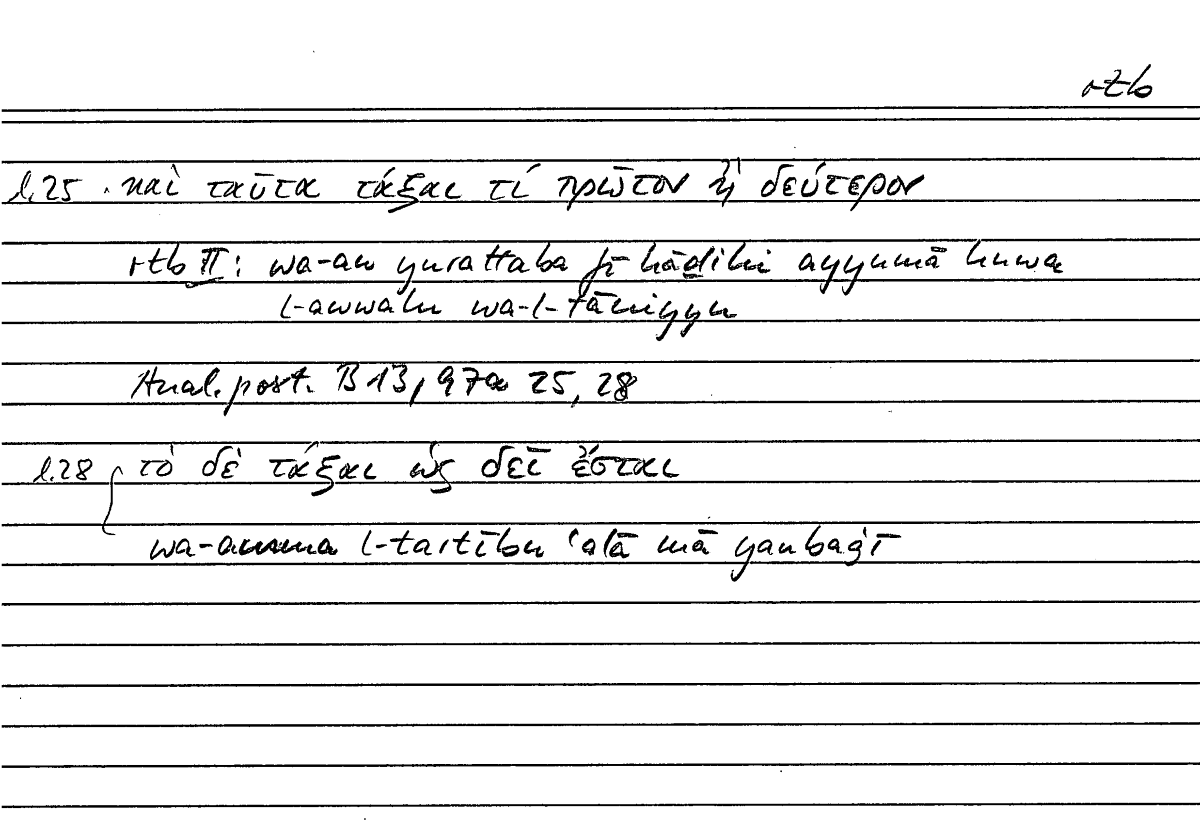 rtb
l.25 . καὶ ταῦτα τάξαι τί πρῶτον ἢ δεύτερον
rtb II : wa-an yurattaba fī hāḏihi ayyumā huwa
l-awwalu wa-l-ṯāniyyu
Anal. post. B 13, 97a 25, 28
l.28 τὸ δὲ τάξαι ὡς δεῖ ἔσται
wa-amma l-tartību ʿalā mā yanbaġī